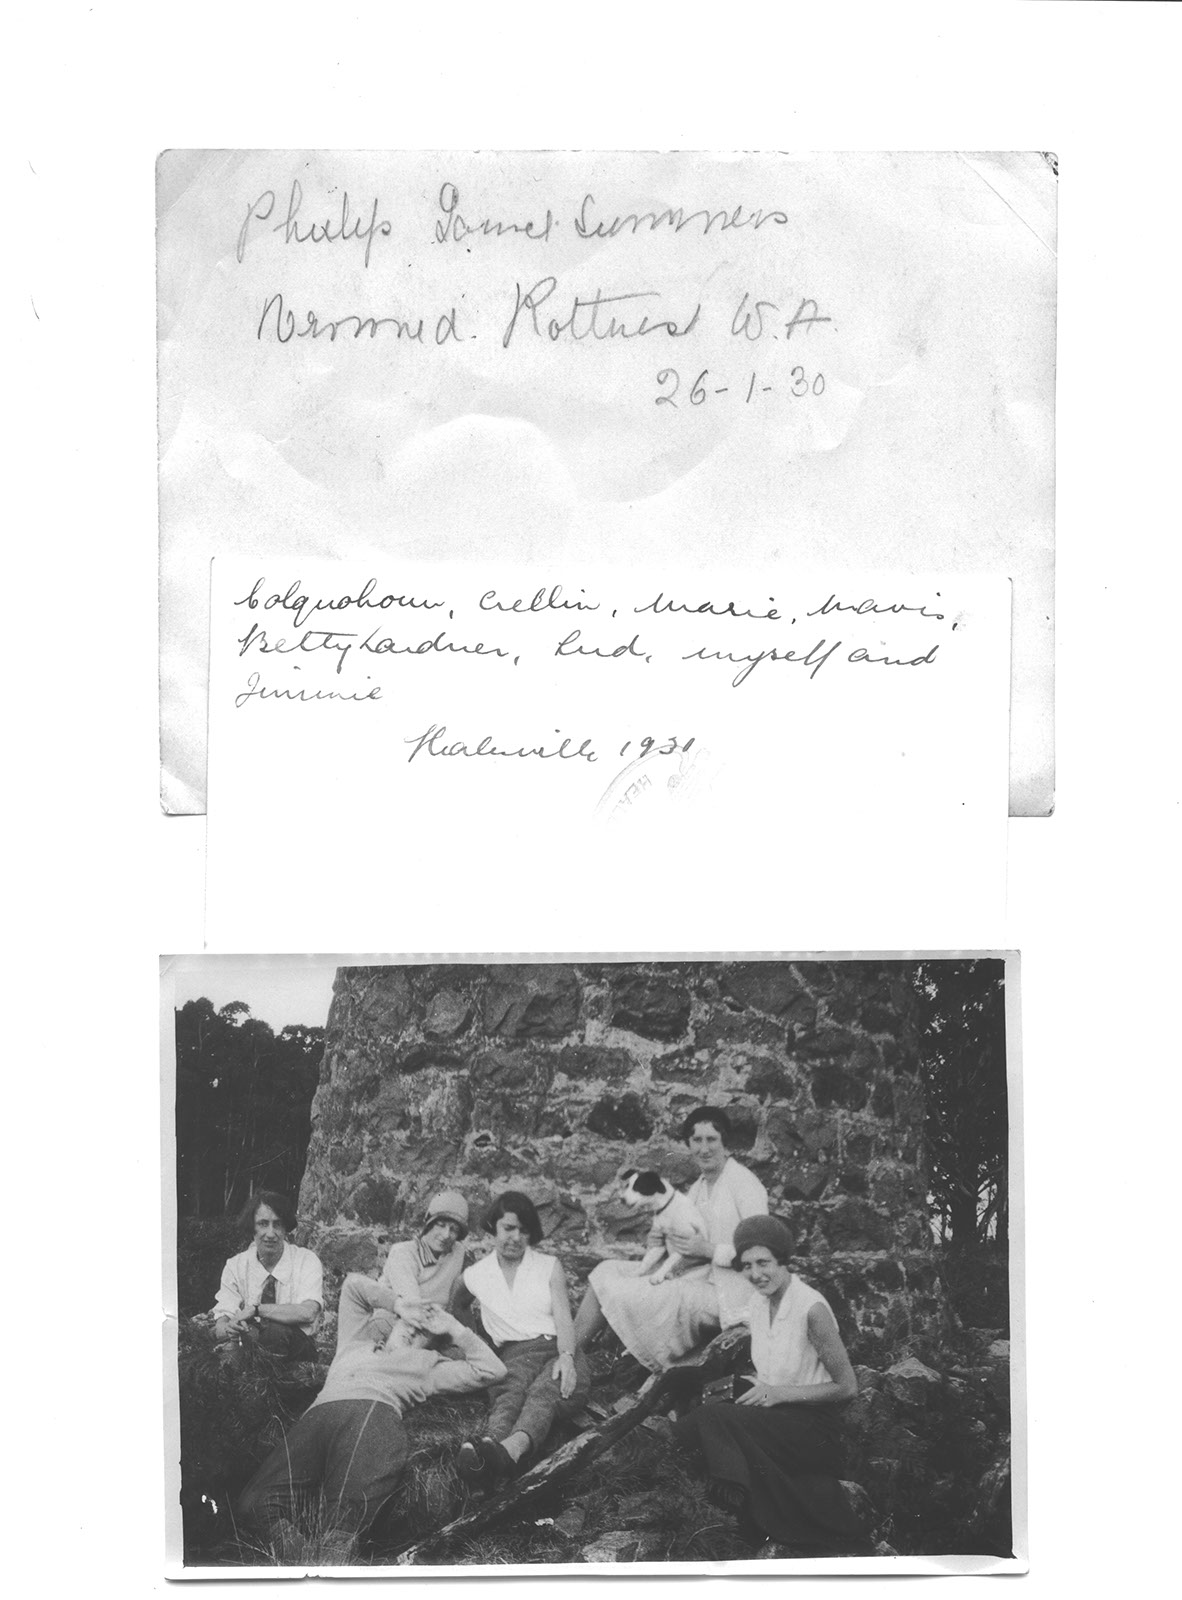 Philip Summers
Drowned. Rottnest W.A.
26-1-30
Colquohoun, Crellin, Marie, Mavis,
Betty Lardner, Lud, myself and
Jimmie
Healesville 1931
HEAL